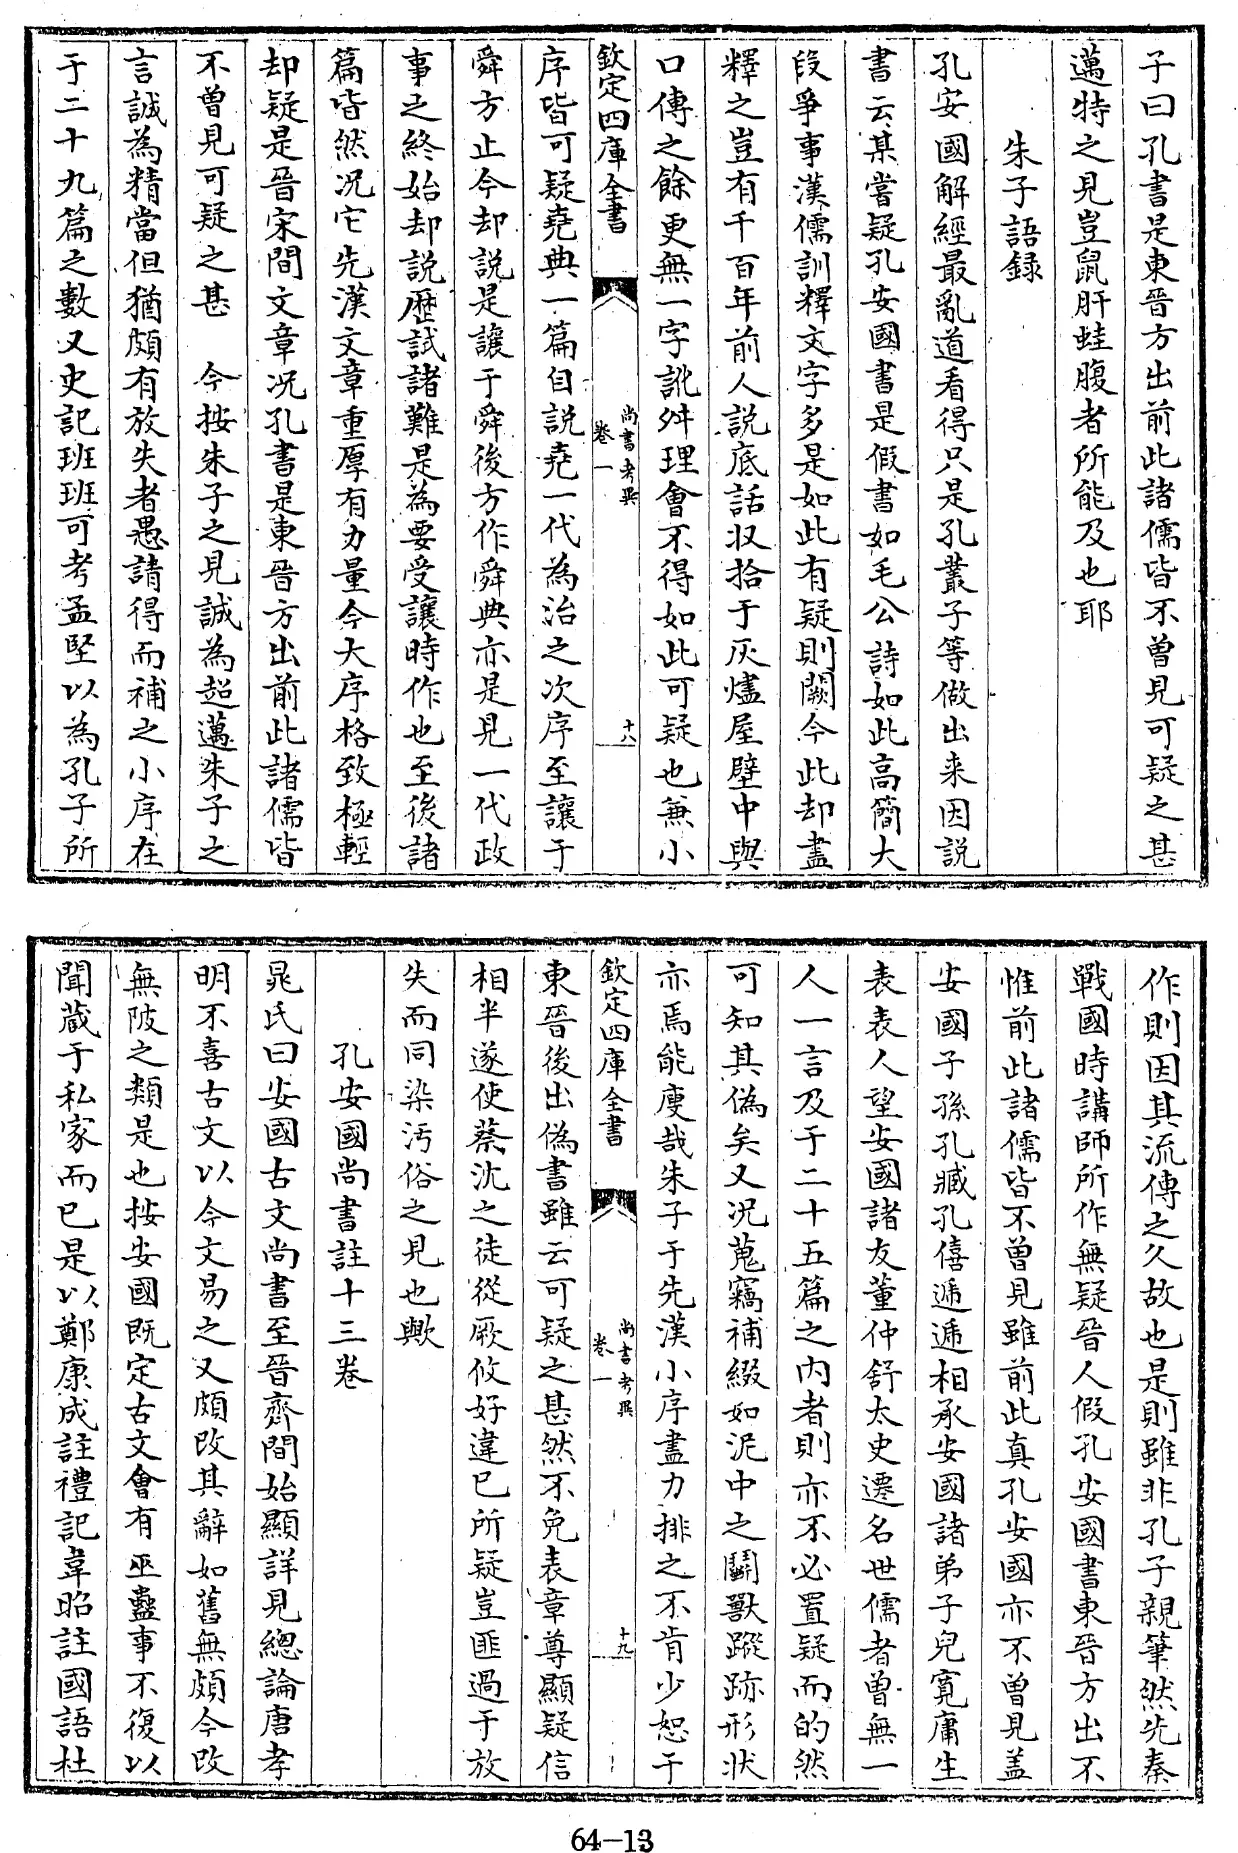 子曰孔書是東晉方出前此諸儒皆不曽見可疑之甚
邁特之見豈鼠肝蛙腹者所能及也耶
朱子語録
孔安國解經最亂道看得只是孔叢子等做出来因説
書云某嘗疑孔安國書是假書如毛公詩如此高簡大
段爭事漢儒訓釋文字多是如此有疑則闕今此却盡
釋之豈有千百年前人説底話収拾于灰燼屋壁中與
口傳之餘更無一字訛舛理會不得如此可疑也兼小
欽定四庫全書
尚書考異
卷一
十八
序皆可疑堯典一篇自説堯一代為治之次序至讓于
舜方止今却説是讓于舜後方作舜典亦是見一代政
事之終始却説歴試諸難是為要受讓時作也至後諸
篇皆然況它先漢文章重厚有力量今大序格致極輕
却疑是晉宋間文章况孔書是東晉方出前此諸儒皆
不曽見可疑之甚　今按朱子之見誠為超邁朱子之
言誠為精當但猶頗有放失者愚請得而補之小序在
于二十九篇之數又史記班班可考孟堅以為孔子所
作則因其流傳之久故也是則雖非孔子親筆然先秦
戰國時講師所作無疑晉人假孔安國書東晉方出不
惟前此諸儒皆不曽見雖前此真孔安國亦不曽見盖
安國子孫孔臧孔僖遞遞相承安國諸弟子兒寛庸生
表表人望安國諸友董仲舒太史遷名世儒者曽無一
人一言及于二十五篇之内者則亦不必置疑而的然
可知其偽矣又况蒐竊補綴如泥中之鬭獸蹤跡形状
亦焉能廋哉朱子于先漢小序盡力排之不肯少恕于
欽定四庫全書
尚書考異
卷一
十九
東晉後出偽書雖云可疑之甚然不免表章尊顯疑信
相半遂使蔡沈之徒從厥攸好違已所疑豈匪過于放
失而同染汚俗之見也歟
孔安國尚書註十三卷
晁氏曰安國古文尚書至晉齊間始顯詳見總論唐孝
明不喜古文以今文易之又頗改其辭如舊無頗今改
無陂之類是也按安國既定古文會有巫蠱事不復以
聞藏于私家而已是以鄭康成註禮記韋昭註國語杜
64-13